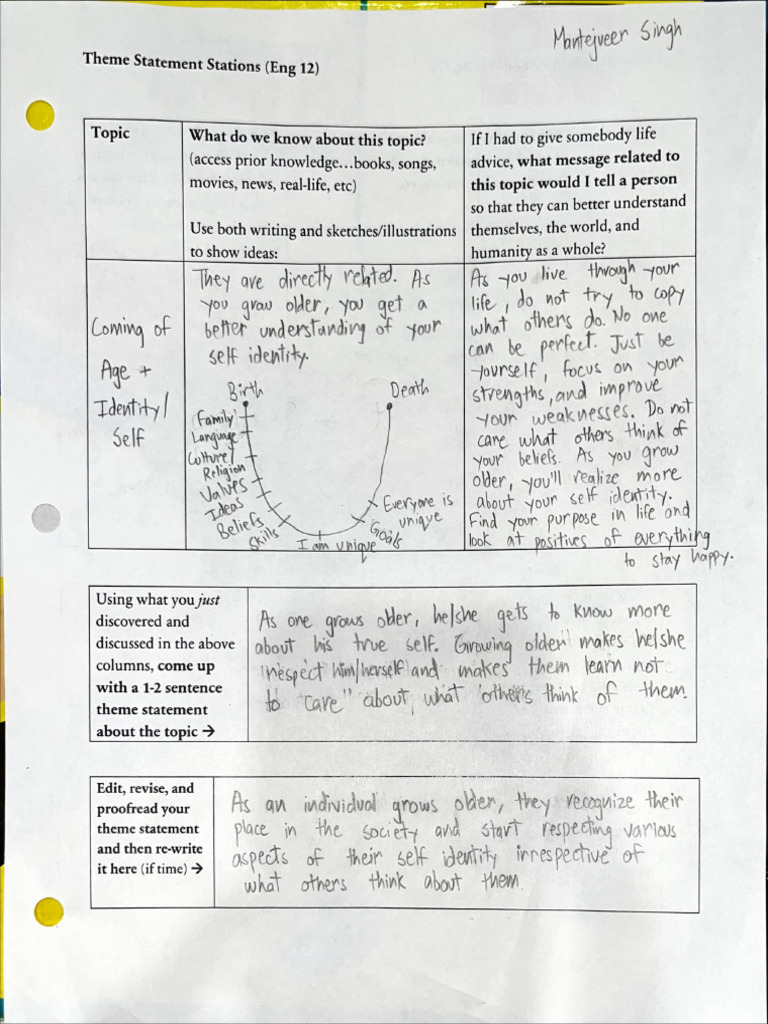 Mantejveer Singh
Theme Statement Stations (Eng 12)
Topic
What do we know about this topic?
(access prior knowledge…books, songs,
movies, news, real-life, etc)
Use both writing and sketches/illustrations
to show ideas:
If I had to give somebody life
advice, what message related to
this topic would I tell a person
so that they can better understand
themselves, the world, and
humanity as a whole?
Coming of
Age +
Identity/
Self
They are directly related. As
you grow older, you get a
better understanding of your
self identity.
Birth
Death
Family
Language
Culture/
Religion
Values
Ideas
Beliefs
Skills
I am unique
Goals
Everyone is
unique
As you live through your
life, do not try to copy
what others do. No one
can be perfect. Just be
yourself, focus on your
strengths, and improve
your weaknesses. Do not
care what others think of
your beliefs. As you grow
older, you'll realize more
about your self identity.
Find your purpose in life and
look at positives of everything
to stay happy.
Using what you just
discovered and
discussed in the above
columns, come up
with a 1-2 sentence
theme statement
about the topic →
As one grows older, he/she gets to know more
about his true self. Growing older makes he/she
respect him/herself and makes them learn not
to "care" about, what others think of them.
Edit, revise, and
proofread your
theme statement
and then re-write
it here (if time) →
As an individual grows older, they recognize their
place in the society and start respecting various
aspects of their self identity irrespective of
what others think about them.